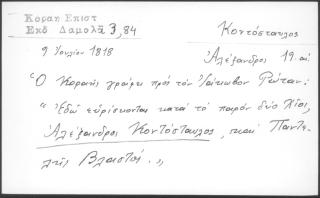 Κοραη Επιστ
Εκδ Δαμαλᾶ 3,84
Κοντόσταυλος
Ἀλέξανδρος 19. αἰ.
9 Ἰουλίου 1818
Ὁ Κοραῆς γράφει πρὸς τὸν Ἰάκωβον Ρώταν:
"Ἐδῶ εὑρίσκονται κατὰ τὸ παρὸν δύο Χῖοι,
Ἀλέξανδρος Κοντόσταυλος, καὶ Παντε-
λῆς Βλαστός.„